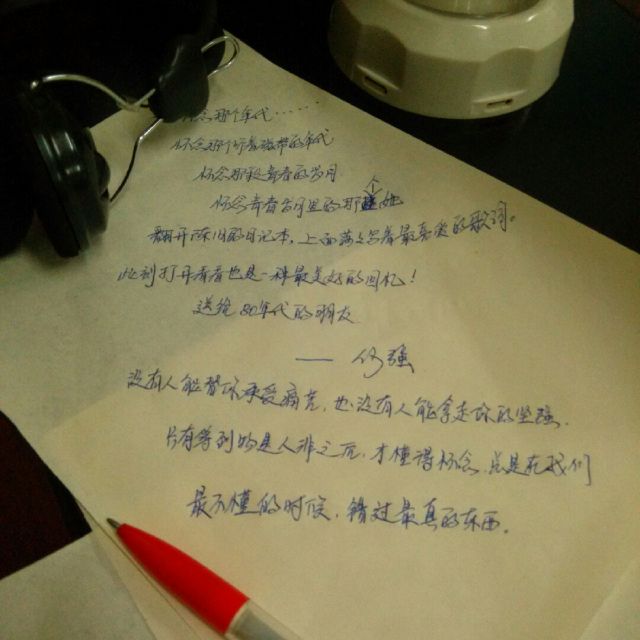 怀念那个年代……
怀念那个听着磁带的年代
怀念那段青春的岁月
怀念青春岁月里的那个她
翻开陈旧的日记本，上面满之写着最喜爱的歌词。
此刻打开看看也是一种最美好的回忆！
送给80年代的朋友
—— 伤强
没有人能替你承受痛苦，也没有人能拿走你的坚强.
只有等到物是人非之后，才懂得怀念，总是在我们
最不懂的时候，错过最真的东西.